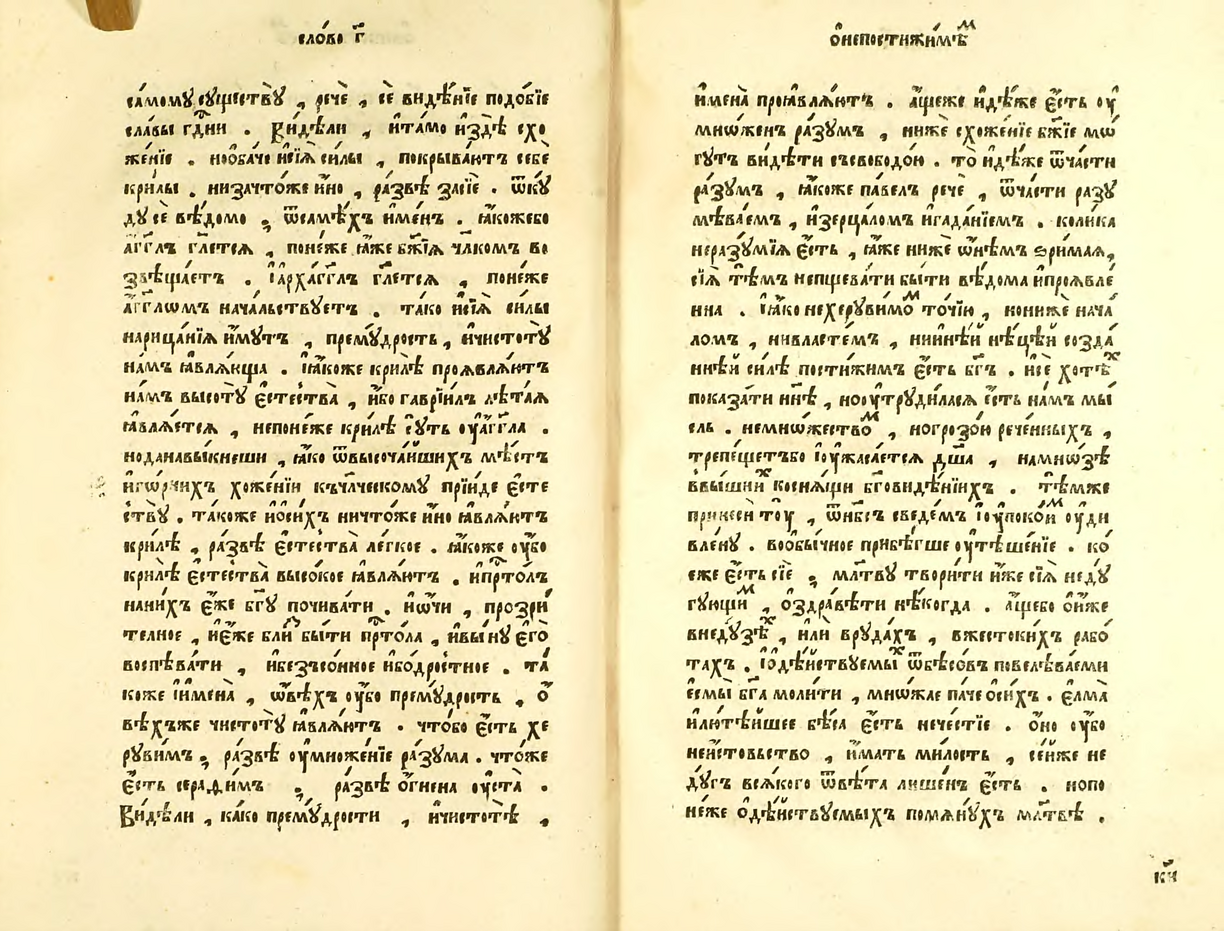 сло́во г҃
са́момꙋ сꙋществꙋ̀ , речѐ , се̏ видѣ́нїе подо́бїе
сла́вы гдⷭ҇ни . Ви́дѣли , и҆та́мо и҆здѣ̀ схо
жє́нїе . нѡо́баче и҆сїѧ̀ си́лы , покрыва́ютъ себѐ
крилы̀ . низачто́же и҆но , ра́звѣ̀ за сїѐ . ѿкꙋ
дꙋ се̏ вѣ́домо , ѿса́мѣхъ и҆ме́нъ . ꙗ҆́кожебо
а҆́гг҃лъ гл҃етсѧ , поне́же ꙗ҆́же бж҃їѧ чл҃комъ во
звѣща́етъ . і҆арха́гг҃лъ гл҃етсѧ , поне́же
а҆́гг҃лѡмъ нача́льствꙋетъ . та́ко и҆сїѧ̀ си́лы
нарица́нїѧ и҆́мꙋтъ , премꙋ́дрость , и҆чистотꙋ̀
на́мъ ꙗ҆влѧ́юща . ꙗ҆́коже крилѣ̀ проѧвлѧ́ютъ
на́мъ высотꙋ̀ є҆стества̀ , и҆́бо гаврїи́лъ лѣта́ѧ
ꙗ҆влѧ́етсѧ , непоне́же крилѣ̀ сꙋ́ть оу҆а҆́гг҃ла .
ноданавы́кнеши , ꙗ҆́ко ѿвысоча́йшихъ мѣ́стъ
и҆го́рнихъ хоже́нїи къчл҃ческомꙋ прїи́де є҆сте
ствꙋ̀ . та́коже и҆ѻ҆си́хъ ничто́же и҆́но ꙗ҆влѧ́ютъ
крилѣ̀ , ра́звѣ̀ є҆стества̀ ле́гкое . ꙗ҆́коже оу҆́бо
крилѣ̀ є҆стества̀ высо́кое ꙗ҆влѧ́ютъ . и҆прⷭ҇то́лъ
нани́хъ є҆́же бг҃ꙋ почива́ти . и҆ѻ҆́чи , прозри́
телное , и҆є҆́же бли́ⷥ бы́ти прⷭ҇то́ла , и҆вы́нꙋ є҆го̀
воспѣва́ти , и҆безъсо́нное и҆бо́дростное . та́
коже і҆и҆мена̀ , ѻ҆вѣ́хъ оу҆́бо премꙋ́дрость , ѻ҆
вѣ́хъже чистотꙋ̀ ꙗ҆влѧ́ютъ . что́бо є҆́сть хе
рꙋви́мъ , ра́звѣ̀ оу҆множе́нїе ра́зꙋма . что́же
є҆́сть серафи́мъ , ра́звѣ̀ ѻ҆́гнена оу҆ста̀ .
Ви́дѣли , ка́ко премꙋ́дрости , и҆чистотѣ̀ ,
ѻ҆непостижи́мѣⷨ
и҆мена̀ проѧвлѧ́ютъ . а҆́щеже и҆дѣ́же є҆́сть оу҆
мно́женъ ра́зꙋмъ , нижѐ схоже́нїе бж҃їе мо́
гꙋтъ ви́дѣти съсвобо́дою . то̀ и҆дѣ́же ѿча́сти
ра́зꙋмъ , ꙗ҆́коже па́велъ речѐ , ѿча́сти разꙋ
мѣва́емъ , и҆зерца́ломъ и҆гада́нїемъ . коли́ка
неразꙋ́мїѧ є҆́сть , ꙗ҆́же нижѐ ѻ҆нѣ́мъ зри́маѧ ,
сїѧ̀ тѣ́мъ непщева́ти бы́ти вѣ́дома и҆проѧвле
нна . і҆ꙗ҆́ко нехерꙋви́моⷨ то́чїю , нонижѐ нача́
ломъ , нивласте́мъ , нии҆нѣ́й нѣ́цѣй созда́
ннѣй си́лѣ постижи́мъ є҆́сть бг҃ъ . и҆се̏ хотѣ́ⷯ
показа́ти нн҃ѣ , нооу҆трꙋди́ласѧ є҆́сть на́мъ мы́
сль . немно́жествоⷨ , ногрозо́ю рече́нныхъ ,
трепе́щетъбо і҆оу҆жаса́етсѧ дш҃а̀ , намно́зѣ
ввы́шниⷯ коснѧ́щи бг҃овидѣ́нїихъ . тѣ́мже
принесѝ тоу҆ , ѿнб҃съ све́демъ і҆оу҆поко́иⷨ оу҆ди
вле́нꙋ . вообы́чное прибѣ́гше оу҆тѣше́нїе . ко́
еже є҆́сть сїѐ , мл҃твꙋ твори́ти и҆́же сїѧ̀ недꙋ́
гꙋющиⷨ , ѻ҆здравѣ́ти нѣ́когда . а҆́щебо ѻ҆и҆́же
внедꙋ́зѣⷯ , и҆лѝ врꙋда́хъ , вжесто́кихъ рабо́
тахъ . і҆ѻ҆дѣ́йствꙋемыⷯ ѿбѣсо́въ повелѣва́еми
є҆смы̀ бг҃а моли́ти , мно́жае па́че ѻ҆си́хъ . є҆лма̀
и҆лютѣ́йшее бѣ́са є҆́сть нече́стїе . ѻ҆́но оу҆́бо
неи́стовьство , и҆́мать ми́лость , се́йже не
дꙋ́гъ всѧ́кого ѿвѣ́та лише́нъ є҆́сть . нопо
не́же ѻ҆дѣ́йствꙋемыхъ помѧнꙋ́хъ мл҃твѣ .
к҃и